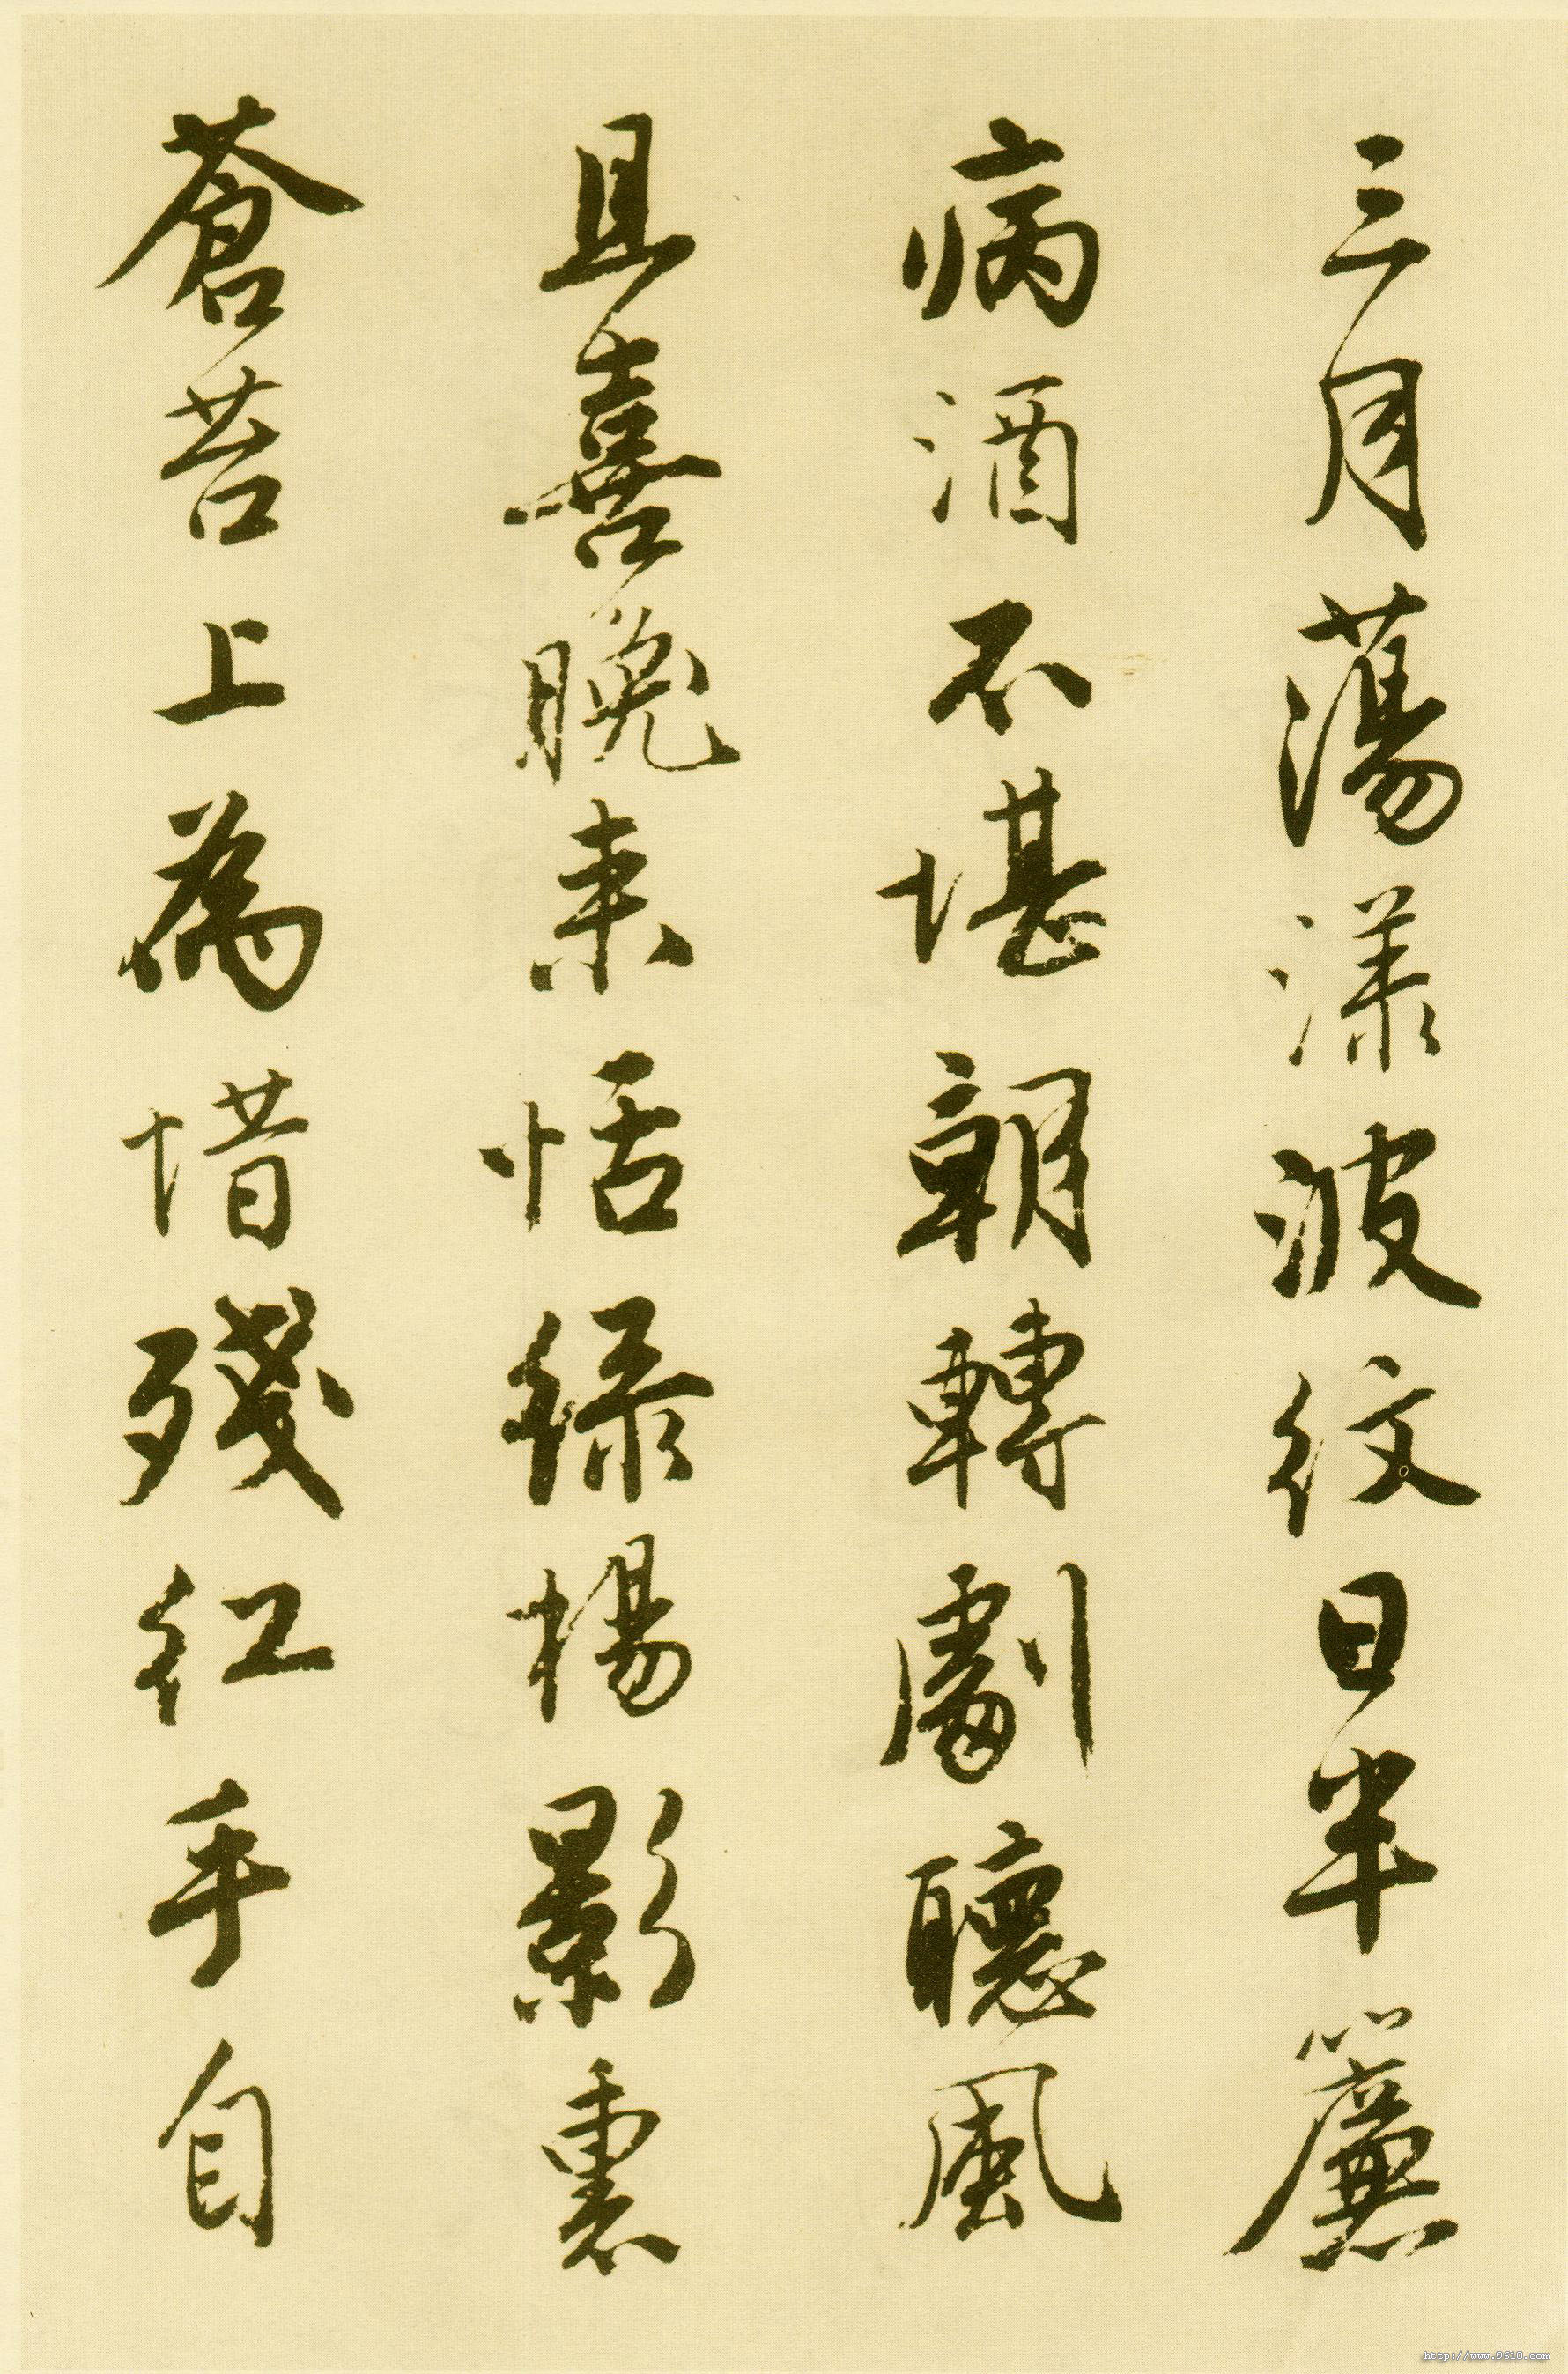 三月蕩漾波紋日半簾
病酒不堪朝轉劇聽風
且喜晚來恬綠楊影裏
蒼苔上為惜殘紅手自
http://www.9610.com